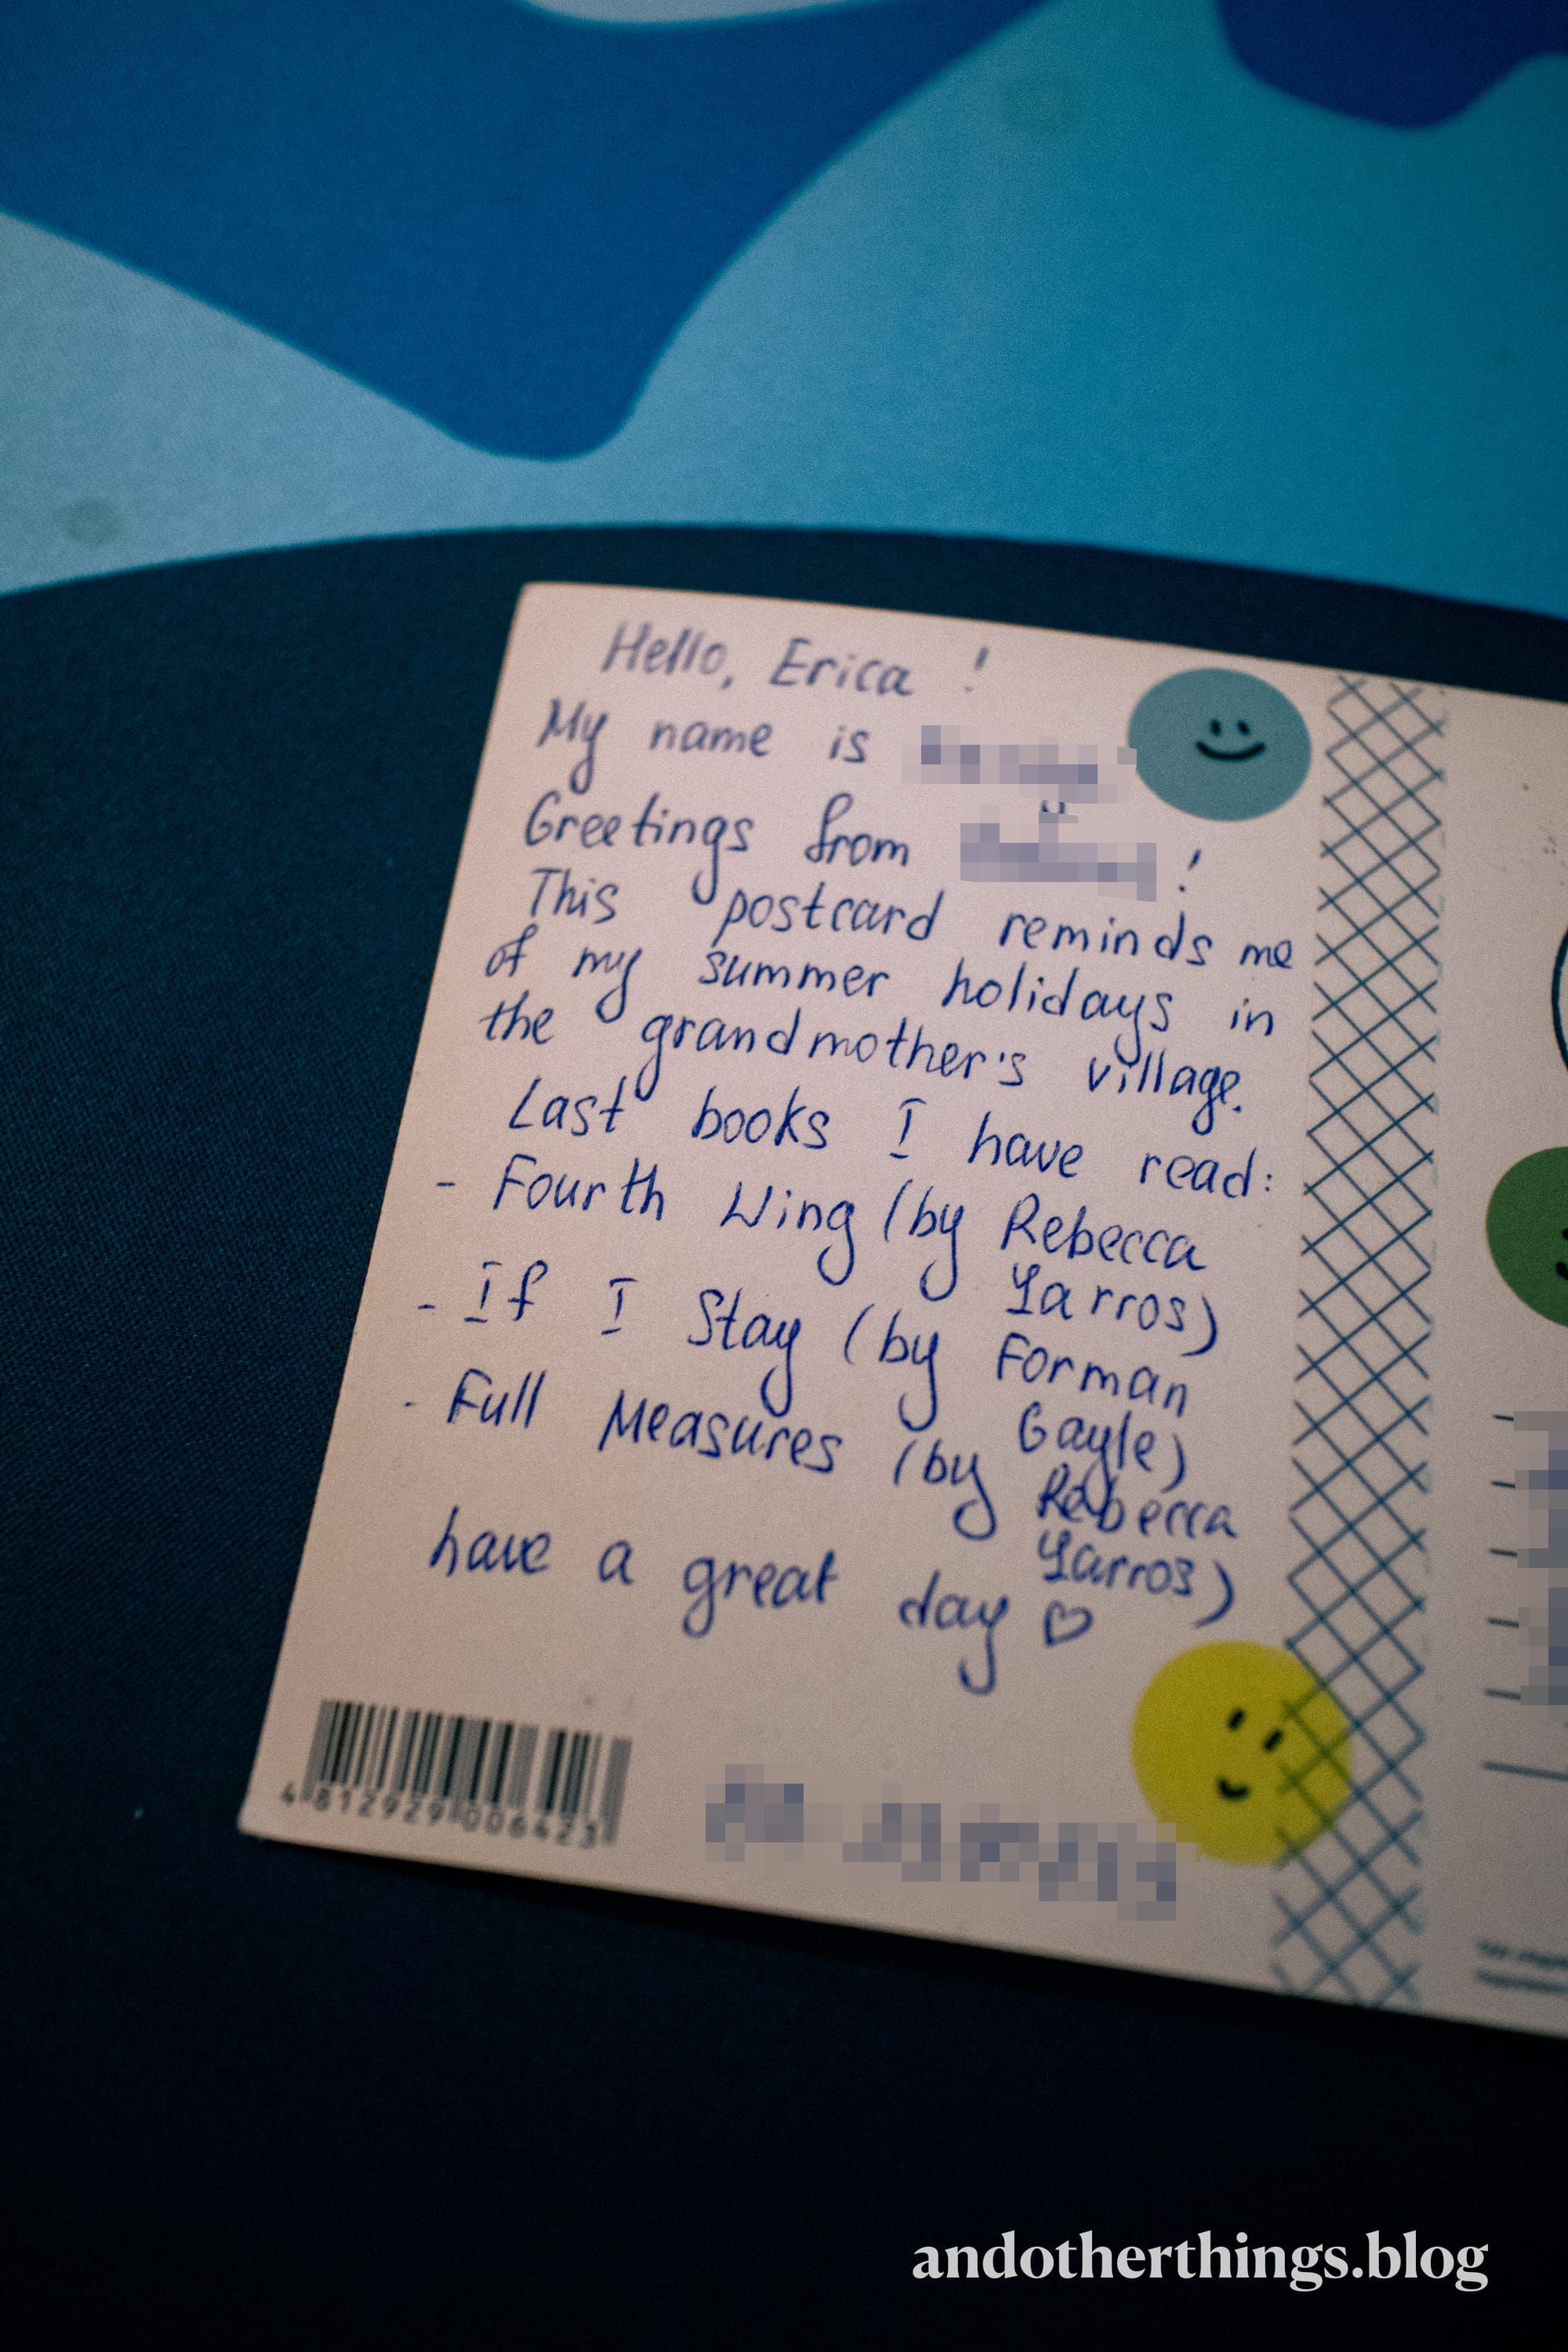 Hello, Erica !
My name is
Greetings from !
This postcard reminds me
of my summer holidays in
the grandmother's village.
Last books I have read:
- Fourth Wing (by Rebecca
Yarros)
- If I Stay (by Forman
Gayle)
- Full Measures (by Rebecca
Yarros)
have a great day ♡
4 812929 006423
andotherthings.blog